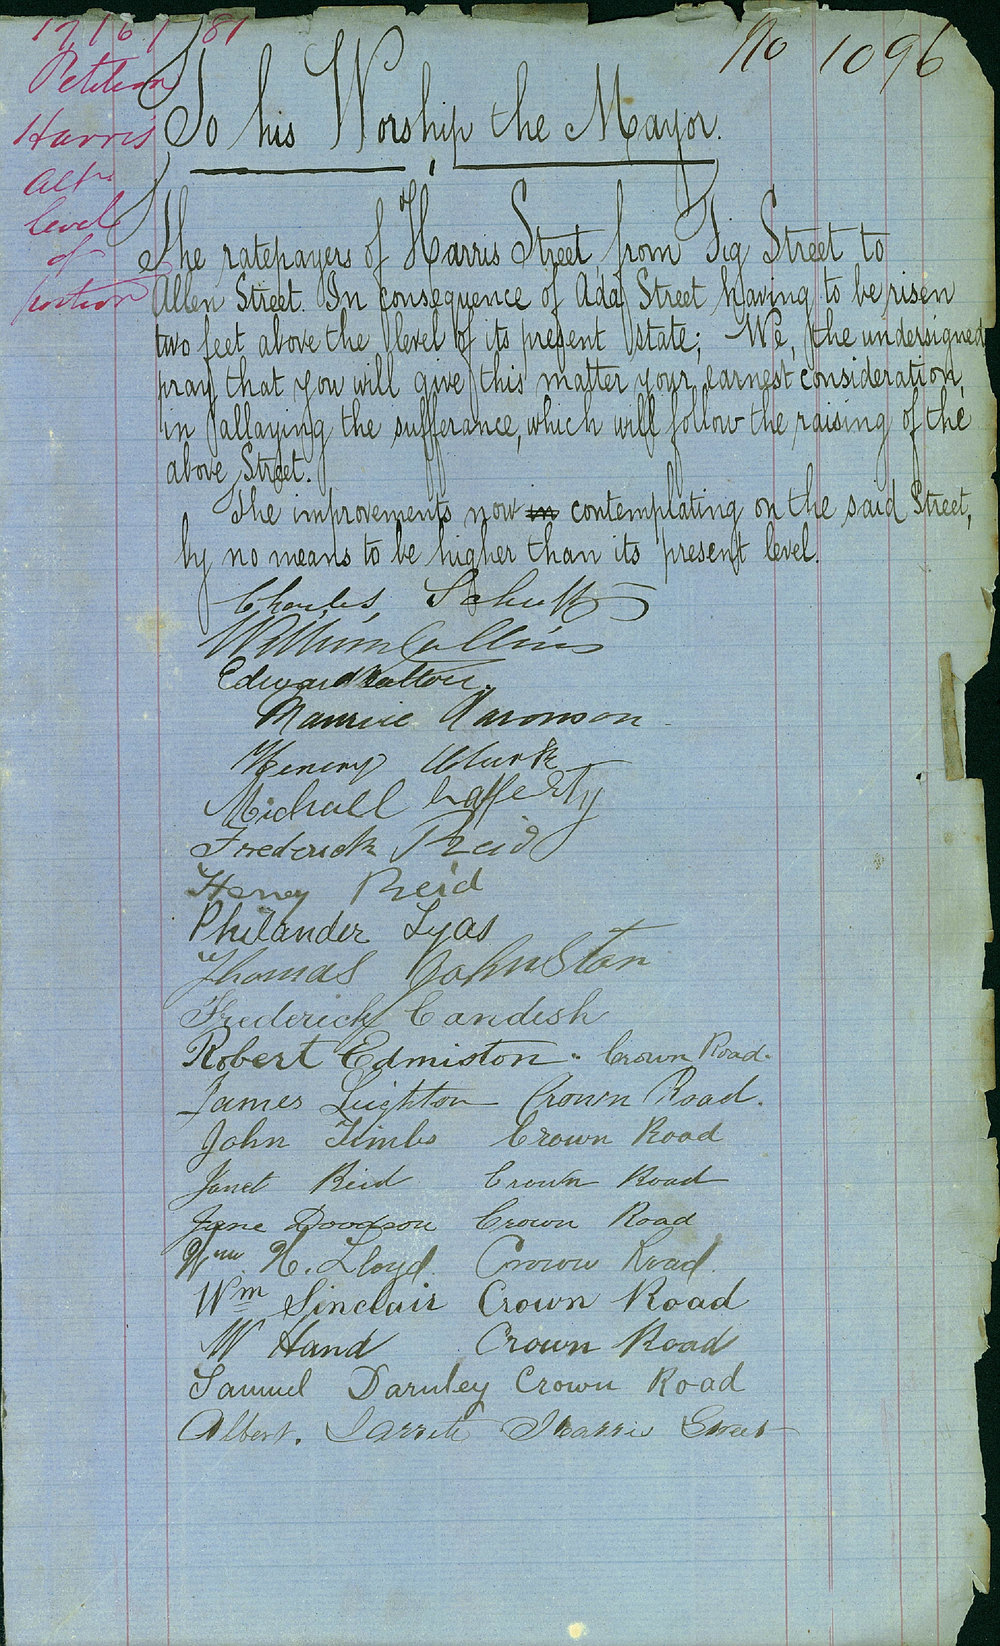 17/6/81
No 1096
Petition
Harris
Altn
level
of
portion
To his Worship the Mayor.
The ratepayers of Harris Street from Fig Street to
Allen Street. In consequence of Ada Street having to be risen
two feet above the level of its present state; We, the undersigned
pray that you will give this matter your earnest consideration,
in allaying the sufferance, which will follow the raising of the
above Street.
The improvements now in contemplating on the said Street,
by no means to be higher than its present level.
Charles
William Collins
Edward
Maurice Aaronson
Henry Clark
Michall Lafferty
Frederick Reid
Henry Reid
Philander Lyas
Thomas Johnston
Frederick Candish
Robert Edmiston. Crown Road.
James Leighton Crown Road.
John Timbs Crown Road
Janet Reid Crown Road
Jane Doodson Crown Road
Wm. H. Lloyd. Crown Road.
Wm Sinclair Crown Road
W Hand Crown Road
Samuel Darnley Crown Road
Albert. Harris Street